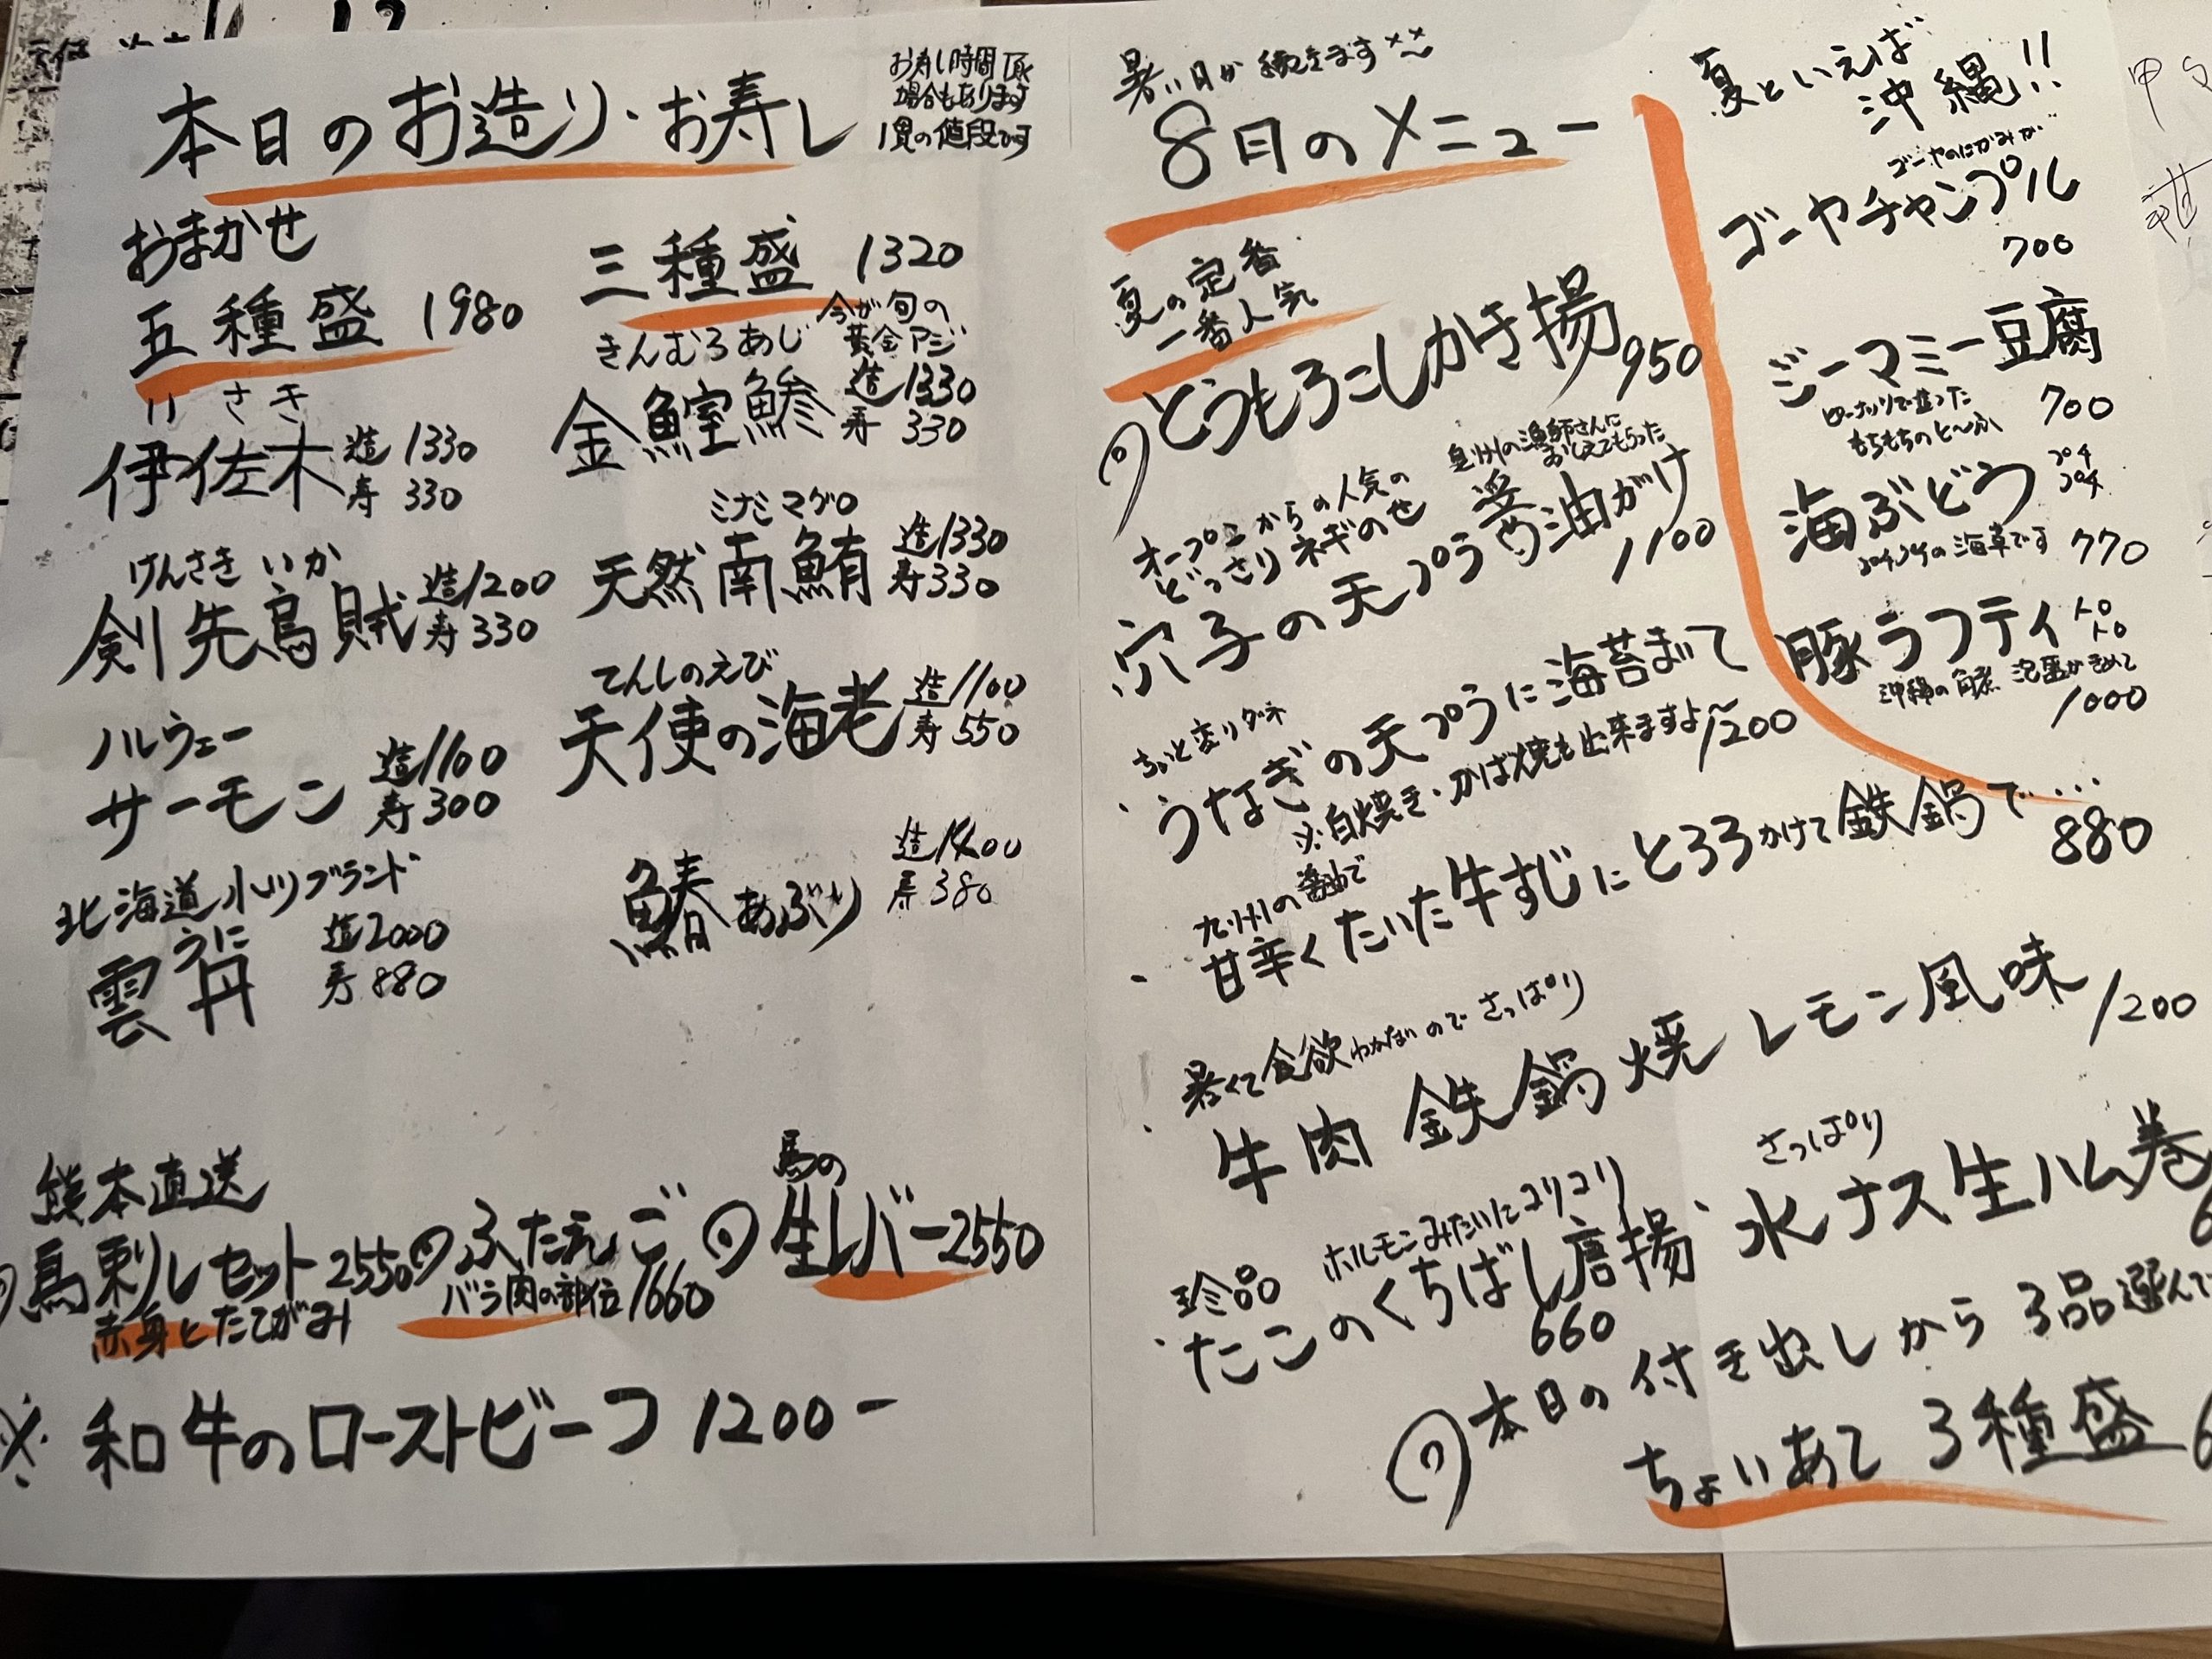 本日のお造り・お寿し
お寿し時間頂く
場合もあります
1貫の値段です
おまかせ
五種盛 1980
三種盛 1320
いさき
伊佐木 造 1330
寿 330
きんむろあじ
今が旬の
黄金アジ
金鰘鯵 造 1330
寿 330
けんさきいか
剣先烏賊 造 1200
寿 330
ミナミマグロ
天然南鮪 造 1330
寿 330
ノルウェー
サーモン 造 1100
寿 300
てんしのえび
天使の海老 造 1100
寿 550
北海道小川ブランド
うに
雲丹 造 2000
寿 880
鰆あぶり 造 1400
寿 380
熊本直送
馬刺しセット 2550
赤身とたてがみ
ふたえご
バラ肉の部位 1660
馬の
生レバー 2550
※ 和牛のローストビーフ 1200-
暑い日が続きます
8月のメニュー
夏の定番
一番人気
とうもろこしかき揚 950
オープンからの人気の
どっさりネギのせ
漁師さんに
おしえてもらった
穴子の天プラ 醤油がけ
1100
ちょっと変りダネ
・うなぎの天プラに海苔まいて
※白焼き・かば焼も出来ますよ~ 1200
九州の醤油で
・甘辛くたいた牛すじにとろろかけて鉄鍋で…
880
暑くて食欲わかないのでさっぱり
・牛肉鉄鍋焼 レモン風味
1200
珍品 ホルモンみたいにコリコリ
・たこのくちばし唐揚
660
さっぱり
・水ナス生ハム巻
本日の付き出しから3品選んで
ちょいあて 3種盛
夏といえば
沖縄!!
ゴーヤのにがみが
ゴーヤチャンプル
700
ジーマミー豆腐
ピーナッツで造った
もちもちのとーふ
700
海ぶどう プチプチ
プチプチの海草です 770
豚ラフティ トロトロ
沖縄の角煮 泡盛がきめて
1000